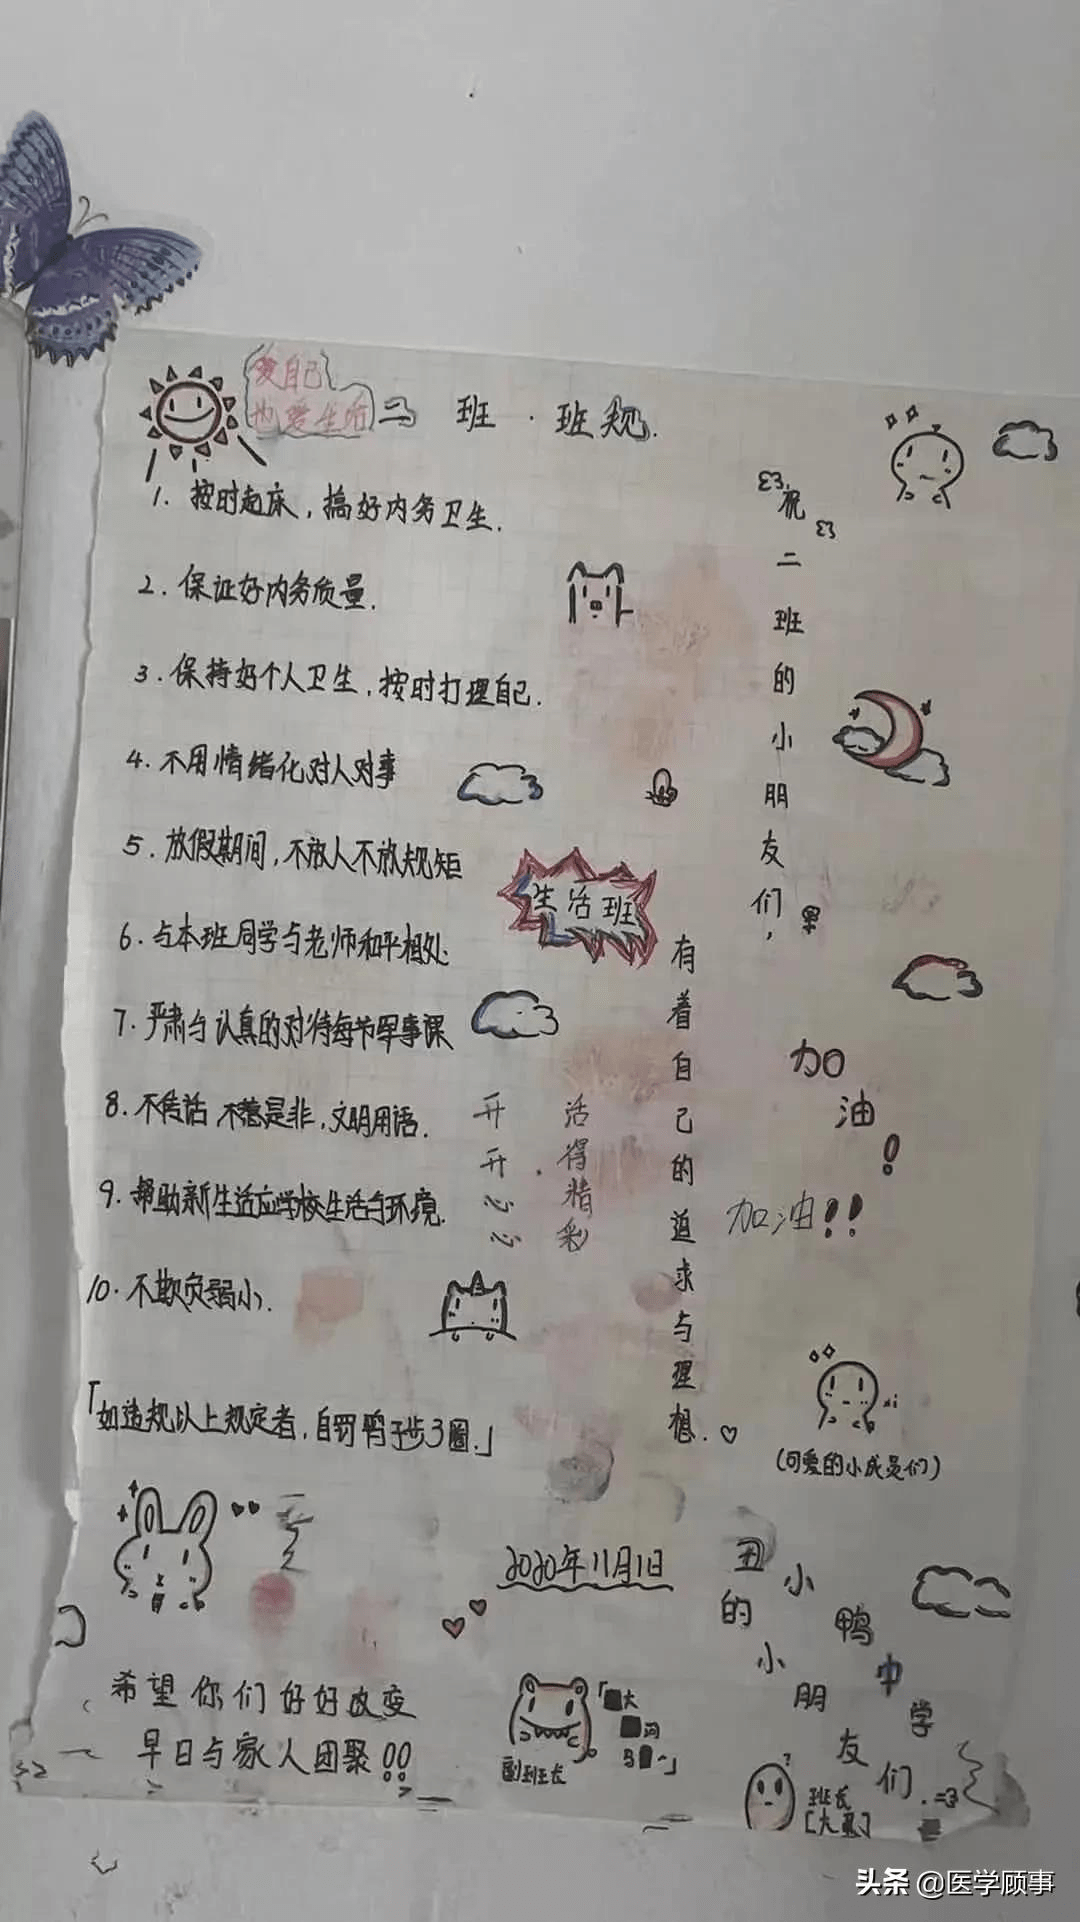 爱自己
也爱生活
二班·班规.
1. 按时起床，搞好内务卫生.
2. 保证好内务质量.
3. 保持好个人卫生，按时打理自己.
4. 不用情绪化对人对事
5. 放假期间，不放人不放规矩
6. 与本班同学与老师和平相处.
7. 严肃与认真的对待每节军事课
8. 不传话 不惹是非，文明用语.
9. 帮助新生适应学校生活与环境.
10. 不欺负弱小.
「如违规以上规定者，自罚鸭子步3圈.」
生活班
开开心心
活得精彩
祝二班的小朋友们，早
有着自己的追求与理想.
加油！
加油！！
(可爱的小成员们)
2020年11月1日
丑小鸭中学
的小朋友们.
希望你们好好改变
早日与家人团聚!!
副班长
班长
头条 @医学顾事